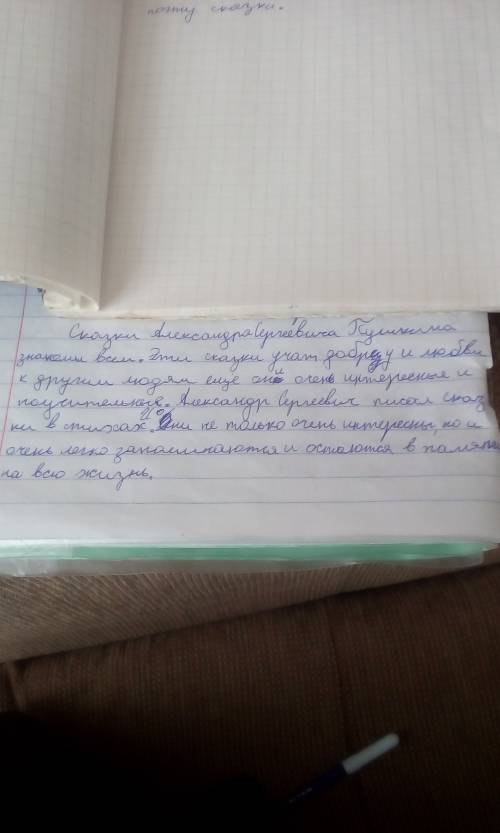 поэту сказки.
Сказки Александра Сергеевича Пушкина
знакомы всем. Эти сказки учат добру и любви
к другим людям ещё они очень интересные и
поучительные. Александр Сергеевич писал сказ
ки в стихах. И они не только очень интересны, но и
очень легко запоминаются и остаются в памяти
на всю жизнь.